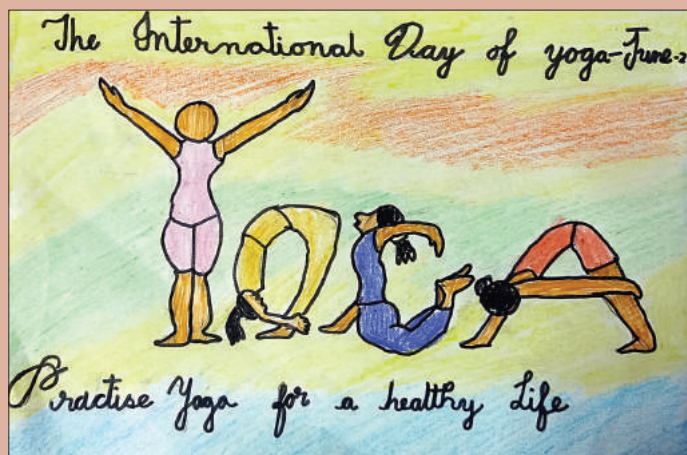 The International Day of yoga-June-2
YOGA
Practise Yoga for a healthy Life